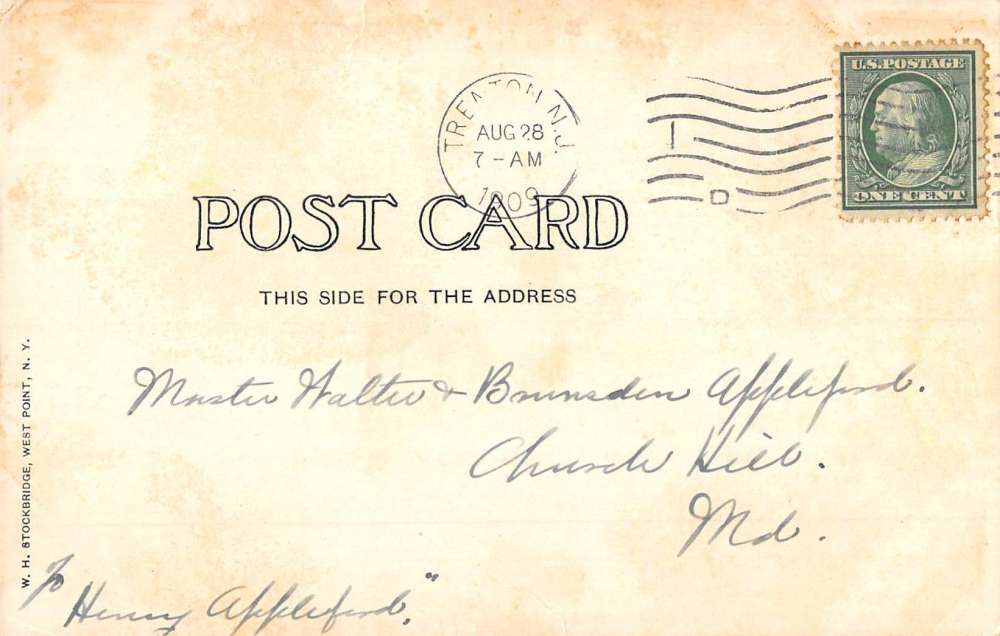 U.S. POSTAGE
ONE CENT
TRENTON, N.J.
AUG 28
7-AM
1909
D
POST CARD
THIS SIDE FOR THE ADDRESS
Master Walter & Brunsden Appleford.
Church Hill.
Md.
Henry Appleford."
W. H. STOCKBRIDGE, WEST POINT, N. Y.